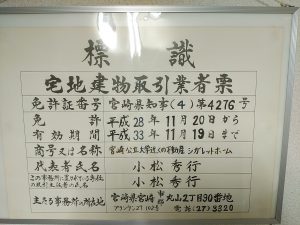 標識
宅地建物取引業者票
免許証番号 宮崎県知事(4)第4276号
免許 平成28年11月20日から
有効期間 平成33年11月19日まで
商号又は名称 宮崎公立大学近くの不動産 シガレットホーム
代表者氏名 小松秀行
この事務所に置かれている専任の取引主任者の氏名 小松秀行
主たる事務所の所在地 宮崎県宮崎市郡丸山2丁目30番地
電話(27)3320